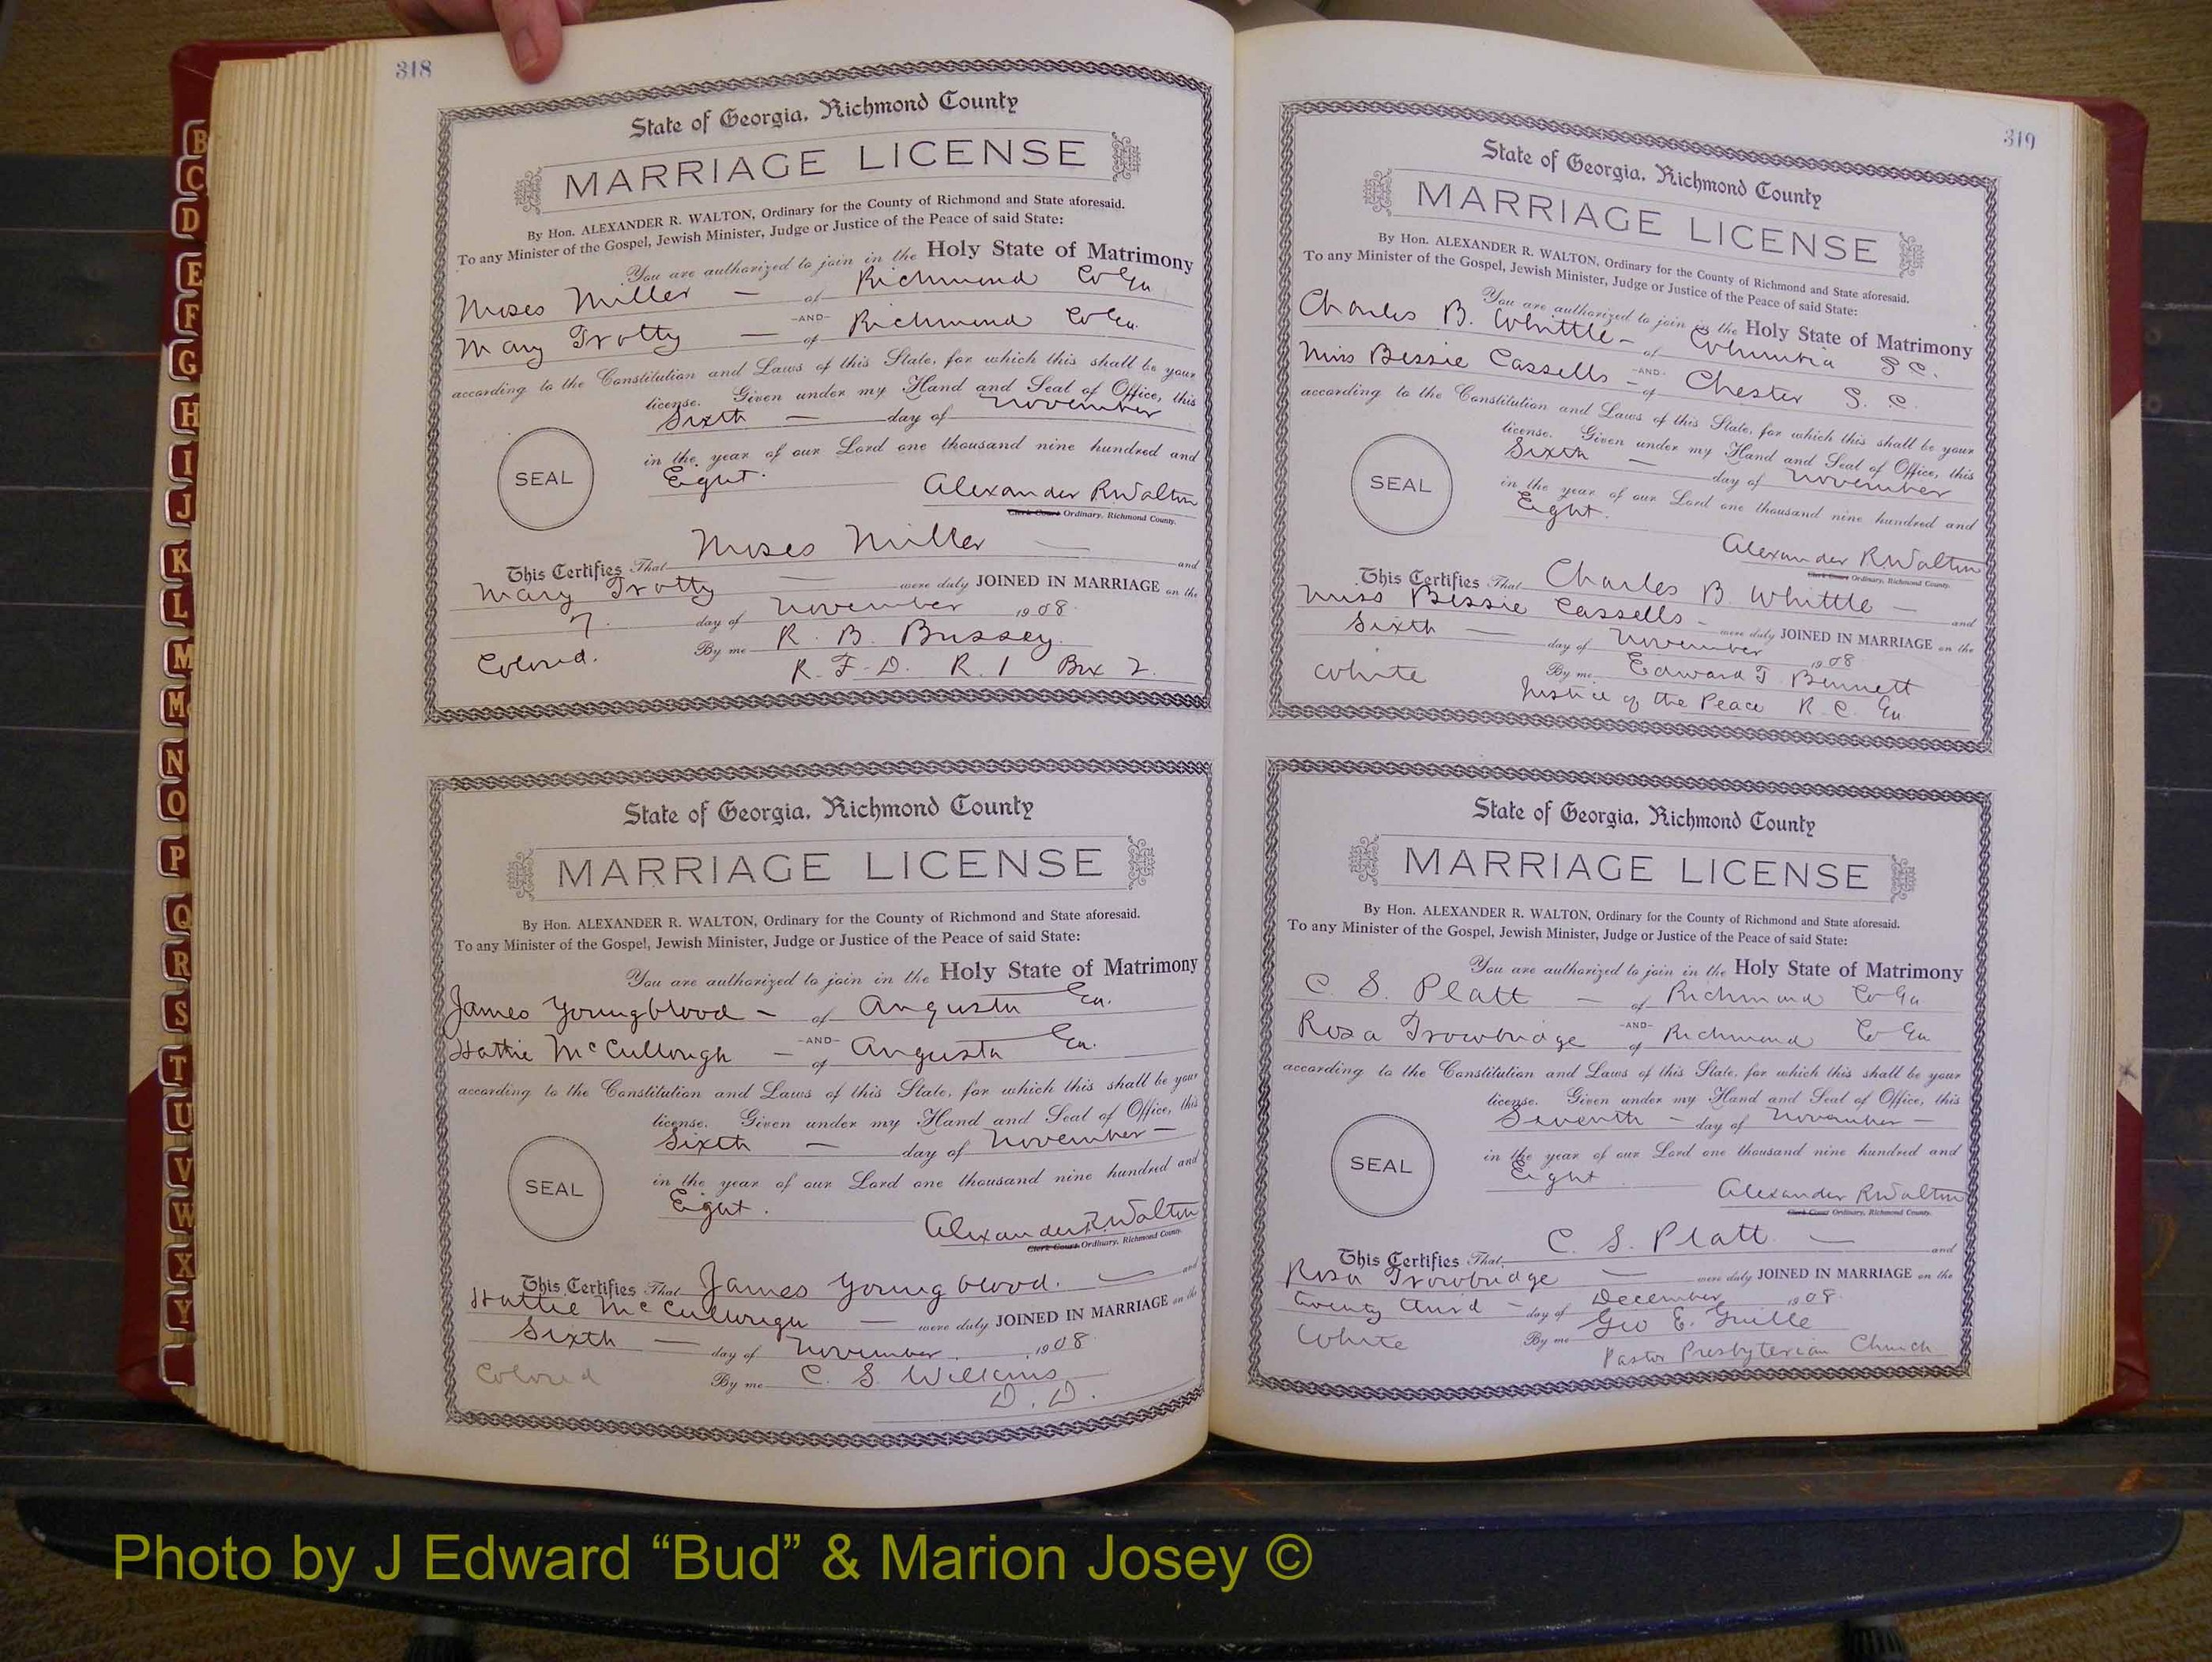 318
State of Georgia, Richmond County
MARRIAGE LICENSE
By Hon. ALEXANDER R. WALTON, Ordinary for the County of Richmond and State aforesaid.
To any Minister of the Gospel, Jewish Minister, Judge or Justice of the Peace of said State:
You are authorized to join in the Holy State of Matrimony
Moses Miller — of Richmond Co Ga
-AND-
Mary Trotty — of Richmond Co Ga.
according to the Constitution and Laws of this State, for which this shall be your
license. Given under my Hand and Seal of Office, this
Sixth — day of November
in the year of our Lord one thousand nine hundred and
Eight.
SEAL
Alexander R Walton
Clerk Court Ordinary, Richmond County.
This Certifies That Moses Miller — and
Mary Trotty — were duly JOINED IN MARRIAGE on the
7. day of November 1908
Colored. By me R. B. Bussey.
R. F. D. R. 1 Box 2.
State of Georgia, Richmond County
MARRIAGE LICENSE
By Hon. ALEXANDER R. WALTON, Ordinary for the County of Richmond and State aforesaid.
To any Minister of the Gospel, Jewish Minister, Judge or Justice of the Peace of said State:
You are authorized to join in the Holy State of Matrimony
James Youngblood — of Augusta Ga.
-AND-
Hattie McCullough — of Augusta Ga.
according to the Constitution and Laws of this State, for which this shall be your
license. Given under my Hand and Seal of Office, this
Sixth — day of November —
in the year of our Lord one thousand nine hundred and
Eight.
SEAL
Alexander R Walton
Clerk Court Ordinary, Richmond County.
This Certifies That James Youngblood. — and
Hattie McCullough — were duly JOINED IN MARRIAGE on the
Sixth — day of November, 1908
Colored By me C. S. Wilkins
D. D.
319
State of Georgia, Richmond County
MARRIAGE LICENSE
By Hon. ALEXANDER R. WALTON, Ordinary for the County of Richmond and State aforesaid.
To any Minister of the Gospel, Jewish Minister, Judge or Justice of the Peace of said State:
You are authorized to join in the Holy State of Matrimony
Charles B. Whittle — of Columbia S C.
-AND-
Miss Bessie Cassells — of Chester S. C.
according to the Constitution and Laws of this State, for which this shall be your
license. Given under my Hand and Seal of Office, this
Sixth — day of November
in the year of our Lord one thousand nine hundred and
Eight.
SEAL
Alexander R Walton
Clerk Court Ordinary, Richmond County.
This Certifies That Charles B Whittle — and
Miss Bessie Cassells — were duly JOINED IN MARRIAGE on the
Sixth — day of November 1908
White By me Edward T Bennett
Justice of the Peace R. C. Ga
State of Georgia, Richmond County
MARRIAGE LICENSE
By Hon. ALEXANDER R. WALTON, Ordinary for the County of Richmond and State aforesaid.
To any Minister of the Gospel, Jewish Minister, Judge or Justice of the Peace of said State:
You are authorized to join in the Holy State of Matrimony
C. S. Platt — of Richmond Co Ga
-AND-
Rosa Trowbridge of Richmond Co Ga
according to the Constitution and Laws of this State, for which this shall be your
license. Given under my Hand and Seal of Office, this
Seventh — day of November —
in the year of our Lord one thousand nine hundred and
Eight
SEAL
Alexander R Walton
Clerk Court Ordinary, Richmond County.
This Certifies That C. S. Platt — and
Rosa Trowbridge — were duly JOINED IN MARRIAGE on the
twenty third — day of December 1908
White By me Geo E. Guille
Pastor Presbyterian Church
B
C
D
E
F
G
H
I
J
K
L
M
Mc
N
O
P
Q
R
S
T
U
V
W
X
Y
Photo by J Edward “Bud” & Marion Josey ©